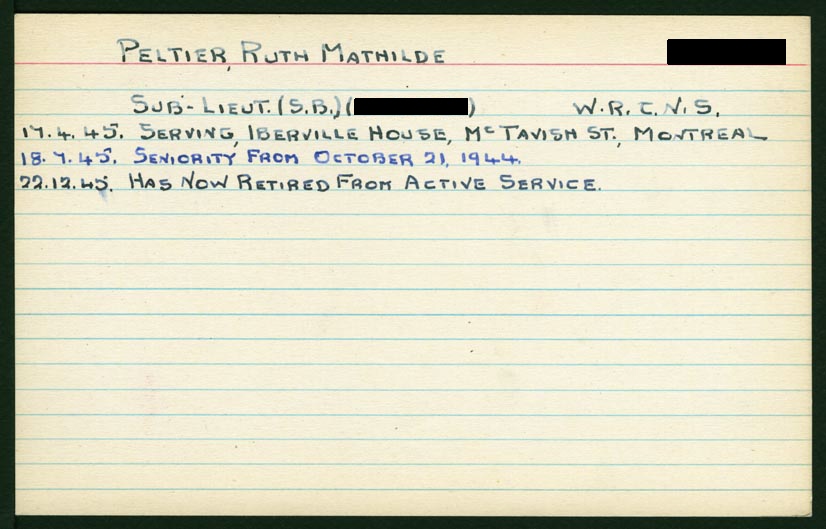 PELTIER, RUTH MATHILDE
SUB-LIEUT. (S.B.) ( ) W.R.C.N.S.
17.4.45. SERVING, IBERVILLE HOUSE, McTAVISH ST., MONTREAL
18.7.45. SENIORITY FROM OCTOBER 21, 1944.
22.12.45. HAS NOW RETIRED FROM ACTIVE SERVICE.